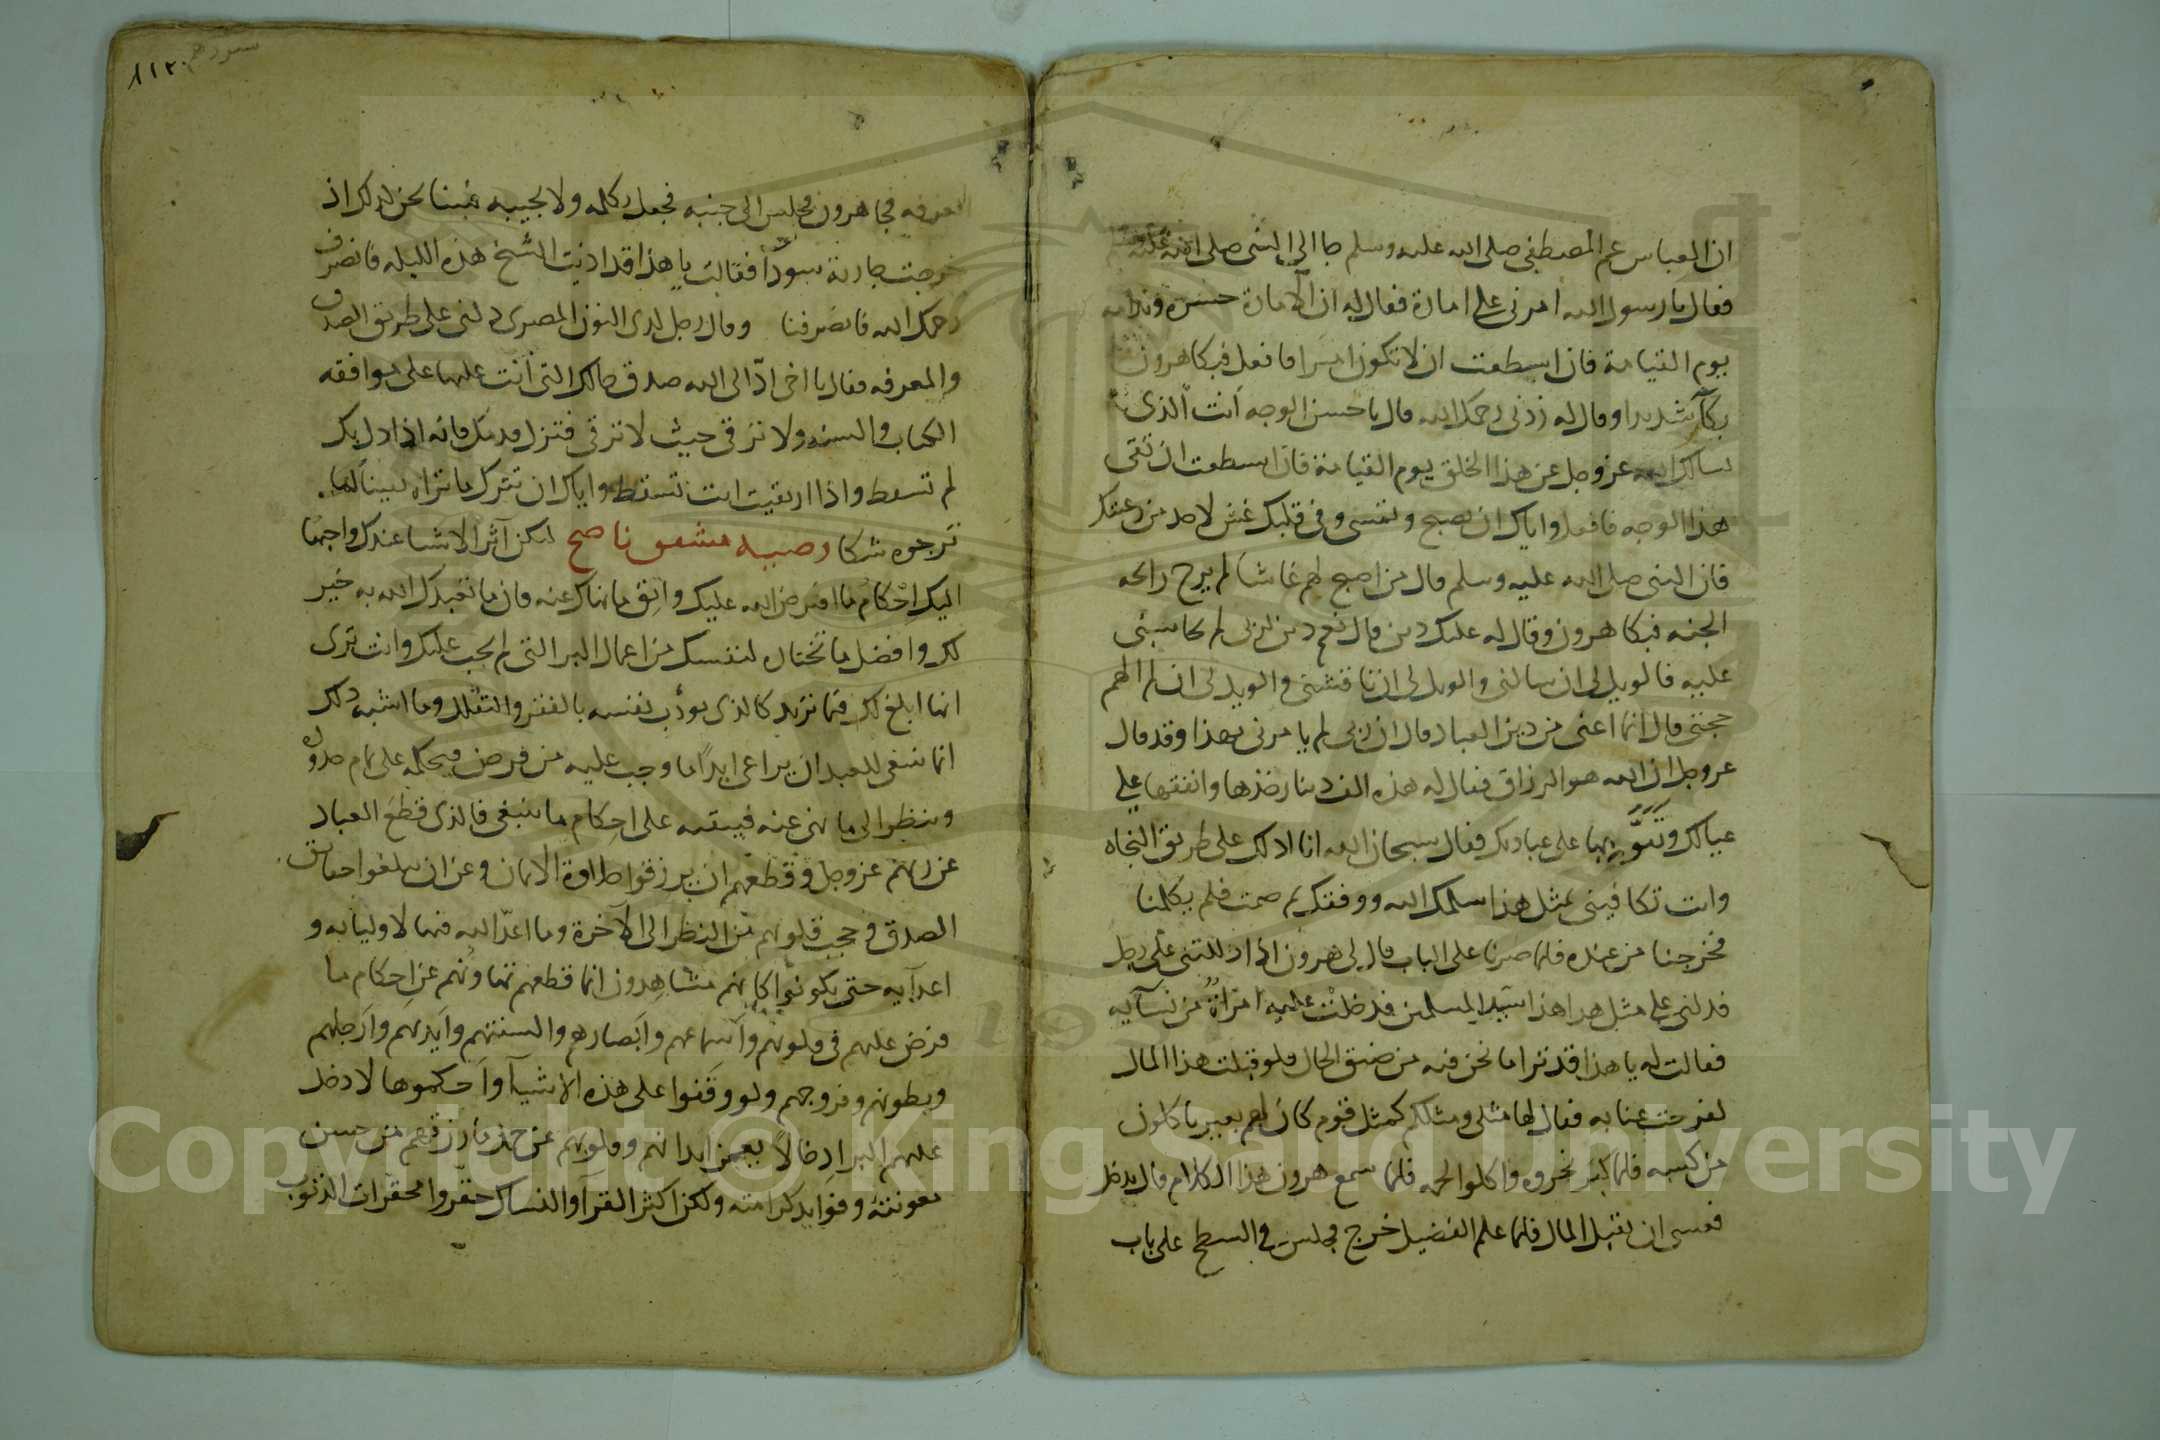 ان العباس عم المصطفى صلى الله عليه وسلم جا الى النبى صلى الله عليه
فقال يا رسول الله امرنى على امارة فقال له ان الامارة حسرة وندامه
يوم القيامة فان اسطعت ان لا تكون اميرا فافعل فبكا هرون
بكآ شديدا وقال له زدنى رحمك الله قال يا حسن الوجه أنت الذى
يسالك الله عز وجل عن هذا الخلق يوم القيامة فان اسطعت ان تقى
هذا الوجه فافعل واياك ان تصبح وتمسى وفى قلبك غش لاحد من رعيتك
فان النبى صلى الله عليه وسلم قال من اصبح لهم غاشا لم يرح رائحه
الجنه فبكا هرون وقال له عليك دين قال نعم دين لربى لم يحاسبنى
عليه فالويل لى ان سالنى والويل لى ان ناقشنى والويل لى ان لم الهم
حجتى قال انما اعنى من دين العباد قال ان ربى لم يامرنى بهذا وقد قال
عز وجل ان الله هو الرزاق فقال له هذه الف دينار خذها وانفقها على
عيالك وتقو بها على عبادتك فقال سبحان الله انا ادلك على طريق النجاه
وانت تكافينى بمثل هذا سلمك الله ووفقك ثم صمت فلم يكلمنا
فخرجنا من عنده فلما صرنا على الباب قال لى هرون اذا دللتنى على رجل
فدلنى على مثل هذا هذا سيد المسلمين فدخلت عليه امراة من نسآيه
فقالت له يا هذا قد ترا ما نحن فيه من ضيق الحال فلو قبلت هذا المال
لفرحت عنا به فقال لها مثلى ومثلكم كمثل قوم كان لهم بعير ياكلون
من كسبه فلما كبر نحروه واكلوا لحمه فلما سمع هرون هذا الكلام قال ندخل
فعسى ان يقبل المال فلما علم الفضيل خرج فجلس فى السطح على باب
الغرفه فجا هرون فجلس الى جنبه فجعل يكلمه ولا يجيبه فبينا نحن لذلك اذ
خرجت جارية سودآ فقالت يا هذا قد اذيت الشيخ هذه الليله فانصرف
رحمك الله فانصرفنا وقال رجل لذى النون المصرى دلنى على طريق الصدق
والمعرفه فقال يا اخى ادّ الى الله صدق حالك التى أنت عليها على موافقه
الكتاب والسنه ولا ترقى حيث لا ترقى فتزل قدمك فانه اذا دل بك
لم تسقط واذا ارتقيت انت تسقط واياك ان تترك ما تراه يقينا لما
ترجوه شكا وصيه مشفق ناصح ليكن آثر الاشيا عندك واحبها
اليك احكام ما افترض الله عليك واتق ما نهاك عنه فان ما تعبدك الله به خير
لك وافضل ما تختاره لنفسك من اعمال البر التى لم يجب عليك وانت ترى
انها ابلغ لك فيما تريد كالذى يودب نفسه بالفقر والتقلل وما اشبه ذلك
انما ينبغى للعبد ان يراعى ابدًا ما وجب عليه من فرض فيحكمه على تمام حدوده
وينظر الى ما نهى عنه فيتقيه على احكام ما ينبغى فالذى قطع العباد
عن ربهم عز وجل وقطعهم ان يرزقوا حلاوة الايمان وعن ان يبلغوا حقايق
الصدق وحجب قلوبهم من النظر الى الآخرة وما اعد الله فيها لاوليايه و
اعدآيه حتى يكونوا كانهم مشاهدون انما قطعهم تهاونهم عن احكام ما
فرض عليهم فى قلوبهم وأسماعهم وأبصارهم والسنتهم وأيديهم وأرجلهم
وبطونهم وفروجهم ولو وقفوا على هذه الاشيآ وأحكموها لادخل
عليهم البر ادخالاً يعجز ابدانهم وقلوبهم عن حمل ما رزقهم من حسن
معونته وفوايد كرامته ولكن اكثر القرآ والنساك حقّروا محقرات الذنوب